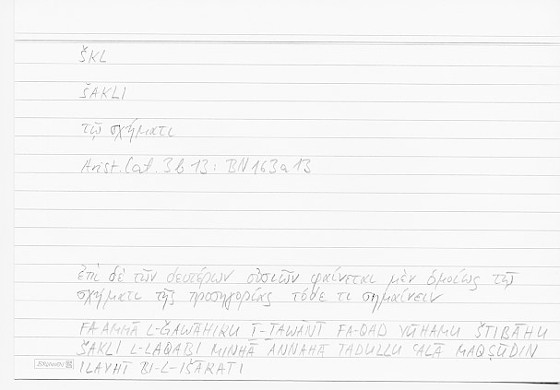 ŠKL
ŠAKLI
τῷ σχήματι
Arist. Cat. 3b13: BN 163a13
ἐπὶ δὲ τῶν δευτέρων οὐσιῶν φαίνεται μὲν ὁμοίως τῷ
σχήματι τῆς προσηγορίας τόδε τι σημαίνειν
FA-AMMĀ L-ǦAWĀHIRU Ṯ-ṮAWĀNĪ FA-QAD YŪHAMU ŠTIBĀHU
ŠAKLI L-LAQABI MINHĀ ANNAHĀ TADULLU ʿALĀ MAQṢŪDIN
ILAYHI BI-L-IŠĀRATI